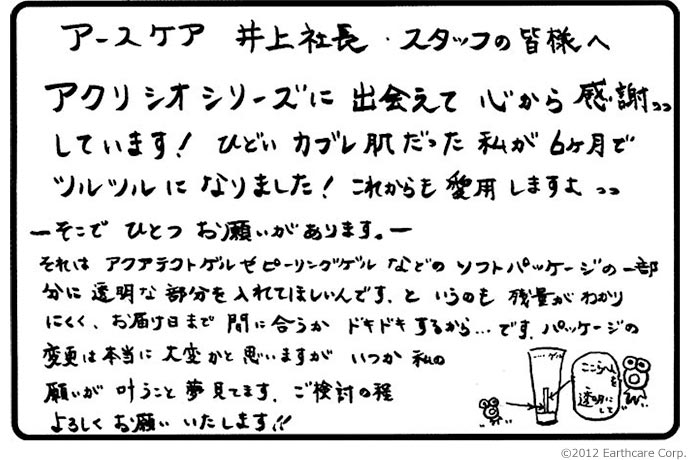 アースケア 井上社長・スタッフの皆様へ
アクリシオシリーズに出会えて心から感謝っっ
しています！ひどいカブレ肌だった私が6ヶ月で
ツルツルになりました！これからも愛用しますよっっ
ーそこでひとつお願いがあります。ー
それはアクアテクトゲルやピーリングゲルなどのソフトパッケージの一部
分に透明な部分を入れてほしいんです。というのも残量がわかり
にくく、お届け日まで間に合うかドキドキするから…です。パッケージの
変更は本当に大変かと思いますがいつか私の
願いが叶うこと夢見てます。ご検討の程
よろしくお願いいたします!!
ゲル
ここらへんを
透明にして
©2012 Earthcare Corp.